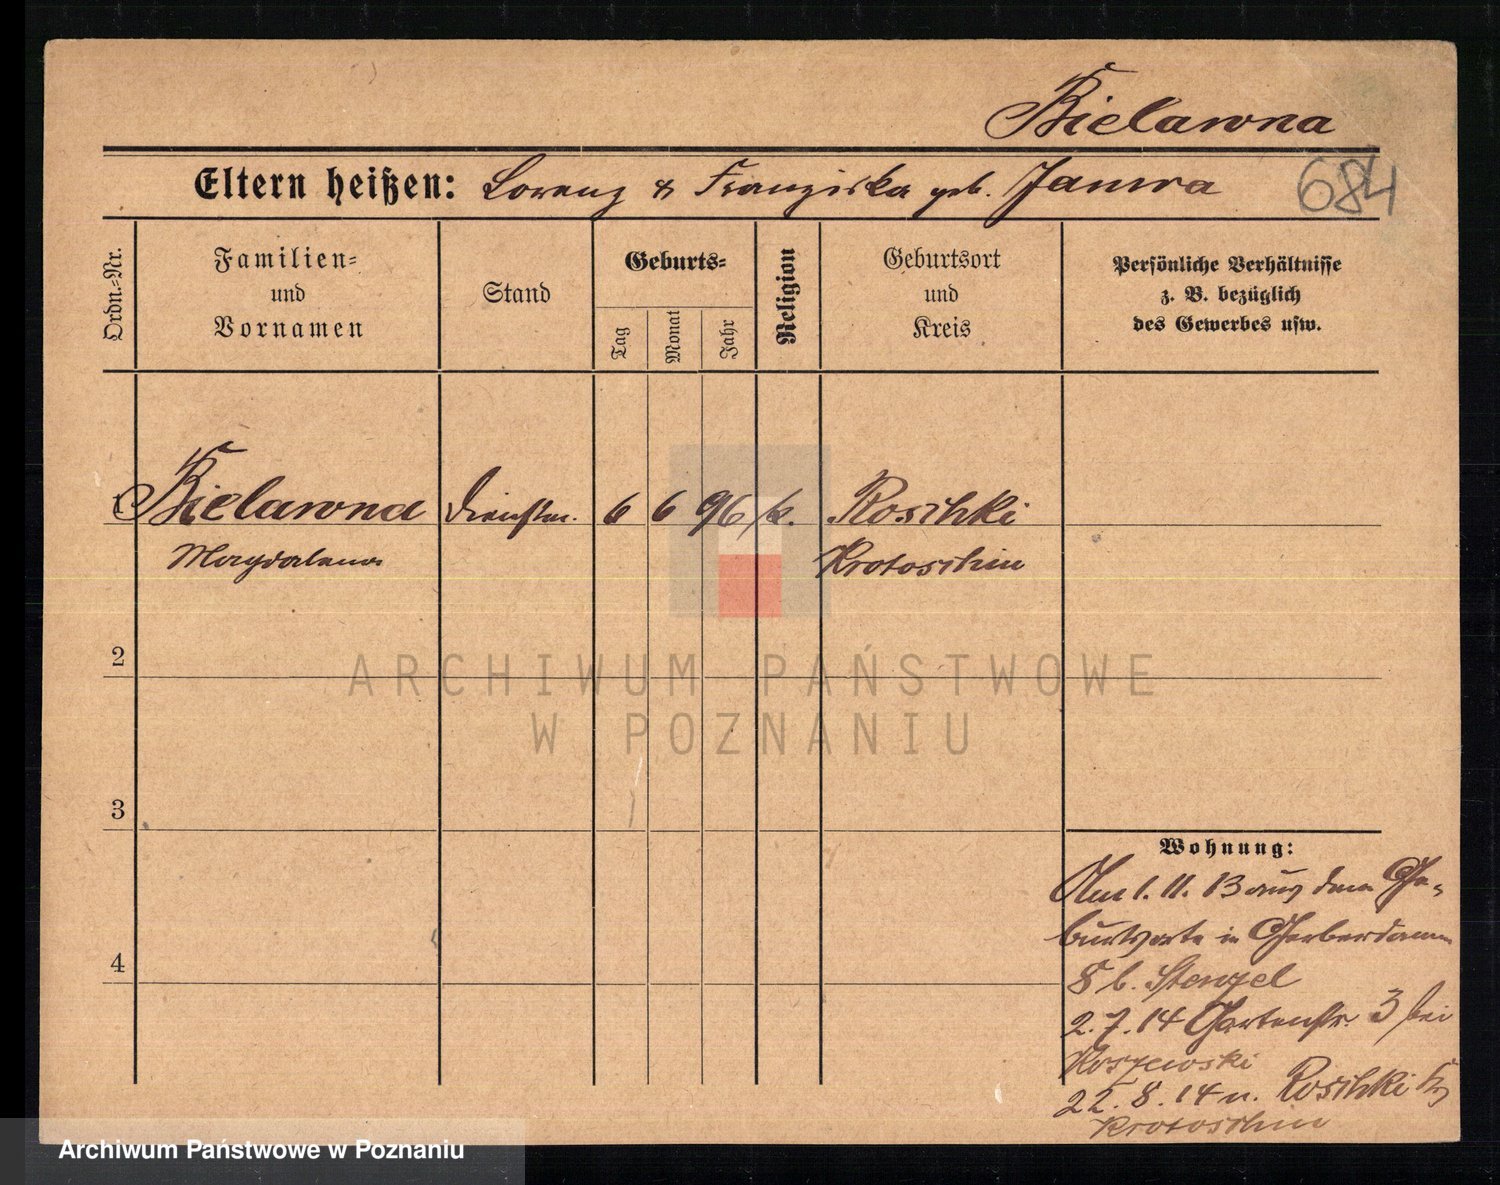 Bielawna
Eltern heißen: Lorenz & Franziska geb. Janura
684
Ordn.-Nr.
Familien-
und
Vornamen
Stand
Geburts-
Tag
Monat
Jahr
Religion
Geburtsort
und
Kreis
Persönliche Verhältnisse
z. B. bezüglich
des Gewerbes usw.
1 Bielawna Dienstm. 6 6 96 k. Roschki
Magdalena Krotoschin
2
ARCHIWUM PAŃSTWOWE
W POZNANIU
3
Wohnung:
Am 1. 11. 13 aus dem Ge-
burtsorte in Gerberdamm
8 b. Stengel
4
2. 7. 14 Gartenstr. 3 bei
Koszewski
22. 8. 14 n. Roschki Kr
Krotoschin
Archiwum Państwowe w Poznaniu